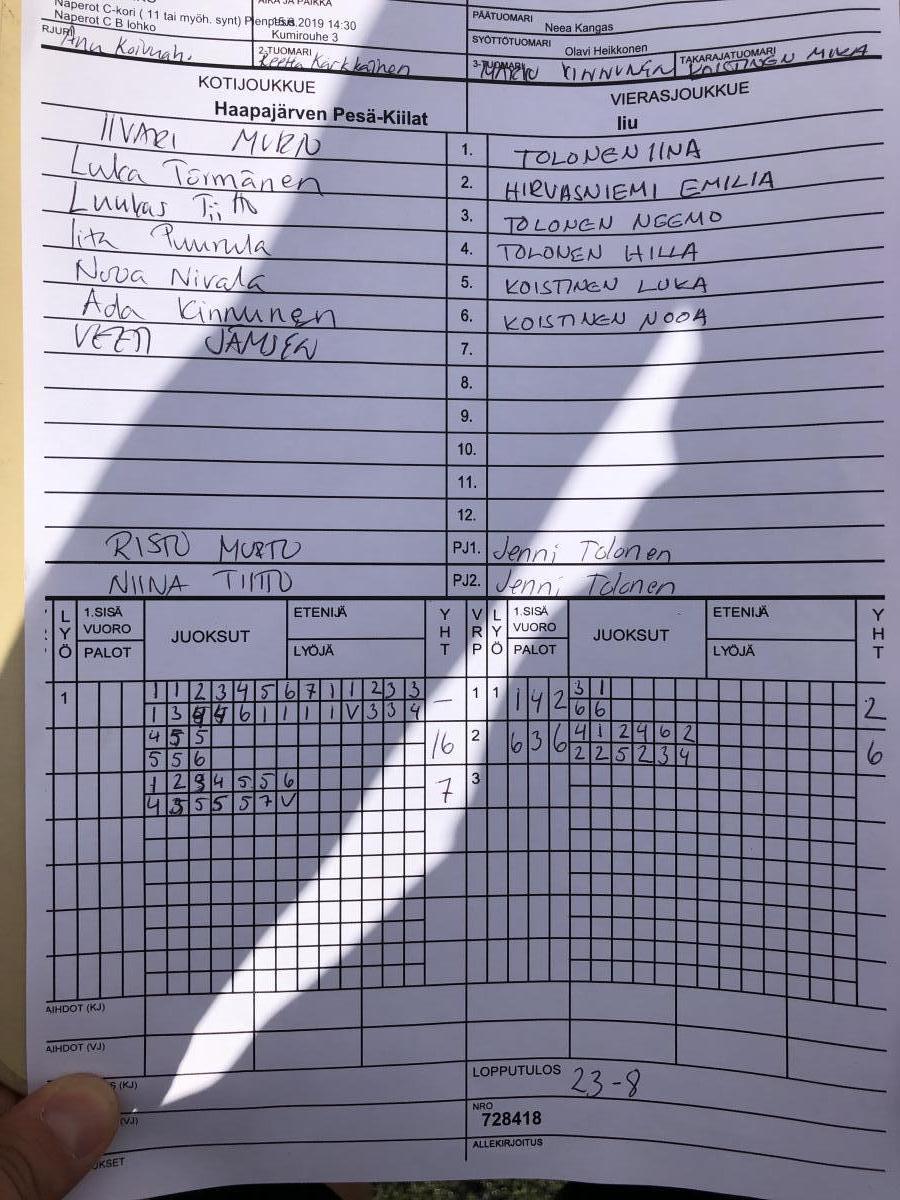 Naperot C-kori ( 11 tai myöh. synt) Pienpesis
Naperot C B lohko
AIKA JA PAIKKA
15.6.2019 14:30
Kumirouhe 3
PÄÄTUOMARI
Neea Kangas
SYÖTTÖTUOMARI
Olavi Heikkonen
RJURI
Anu
2-TUOMARI
Reetta Kärkkäinen
3-TUOMARI
MARKO KINNUNEN
TAKARAJATUOMARI
KOISTINEN MIKA
KOTIJOUKKUE
Haapajärven Pesä-Kiilat
VIERASJOUKKUE
Iiu
IIVARI MURTO 1. TOLONEN IINA
Luka Törmänen 2. HIRVASNIEMI EMILIA
Luukas Tiitto 3. TOLONEN NEEMO
Iita Puurula 4. TOLONEN HILLA
Nova Nivala 5. KOISTINEN LUKA
Ada Kinnunen 6. KOISTINEN NOOA
VEETI JÄMSEN 7.
8.
9.
10.
11.
12.
RISTO MURTO PJ1. Jenni Tolonen
NIINA TIITTO PJ2. Jenni Tolonen
LYÖ 1.SISÄ VUORO PALOT JUOKSUT ETENIJÄ LYÖJÄ YHT VRP LYÖ 1.SISÄ VUORO PALOT JUOKSUT ETENIJÄ LYÖJÄ YHT
1 1 1 2 3 4 5 6 7 1 1 2 3 3 — 1 1 1 4 2 3 1 2
1 3 4 6 1 1 1 1 V 3 3 4 6 6
4 5 5 16 2 6 3 6 4 1 2 4 6 2 6
5 5 6 2 2 5 2 3 4
1 2 3 4 5 5 6 7 3
4 3 5 5 5 7 V
AIHDOT (KJ)
AIHDOT (VJ)
S (KJ)
LOPPUTULOS 23-8
(VJ)
NRO
728418
ALLEKIRJOITUS
UKSET